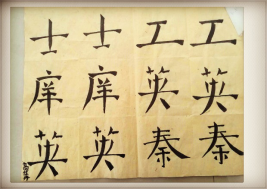 工英秦
工英秦
士庠英
士庠英